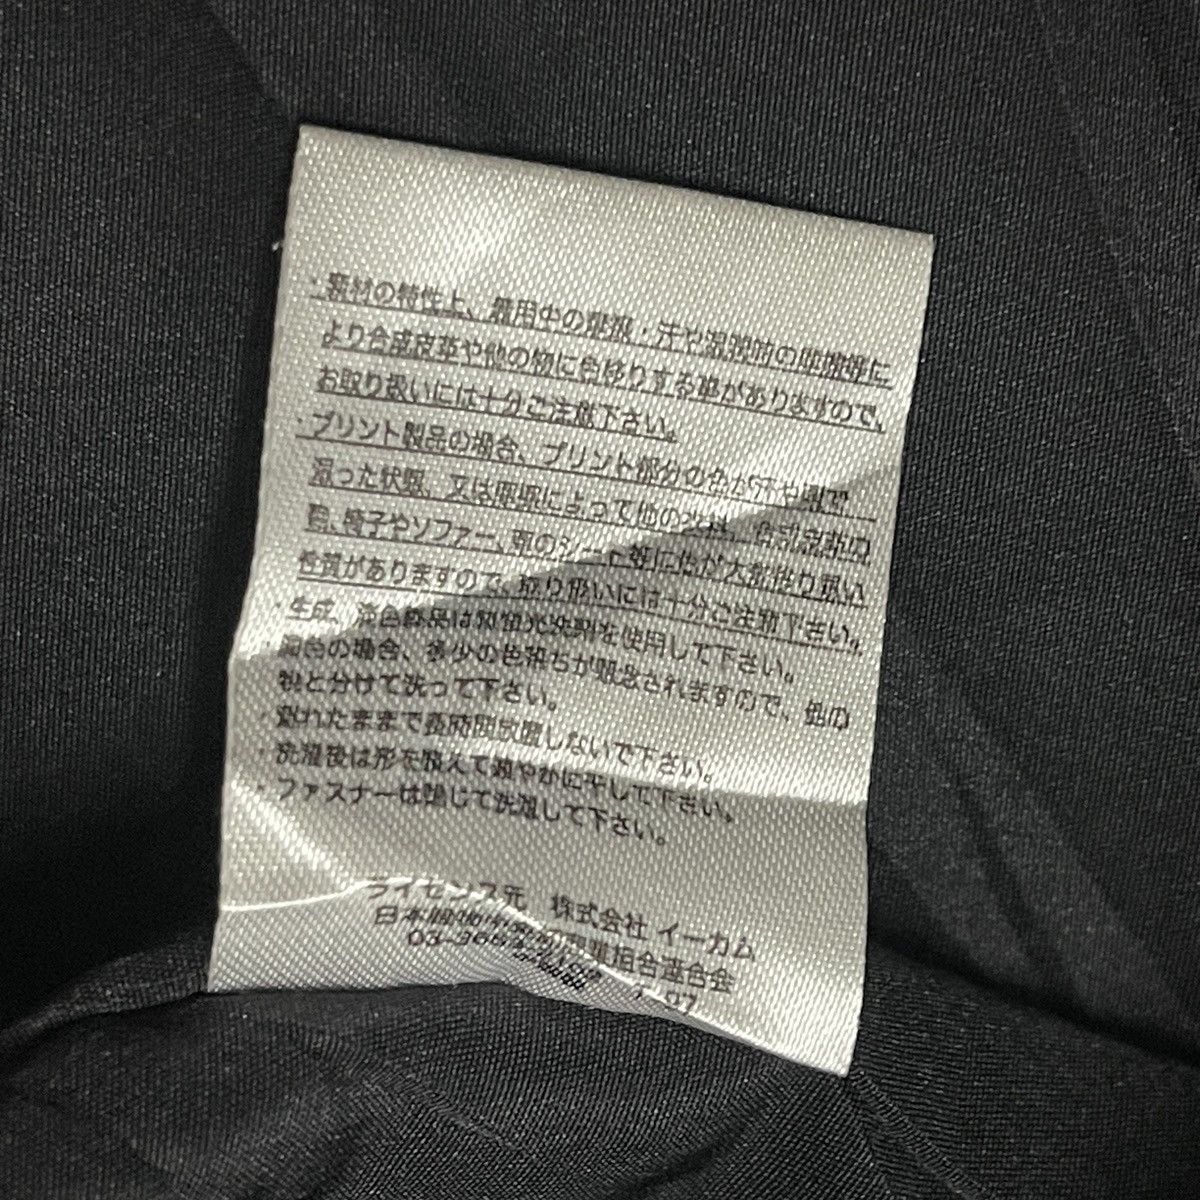 ・素材の特性上、着用中の摩擦・汗や湿潤時の摩擦等に
より合成皮革や他の物に色移りする事がありますので、
お取り扱いには十分ご注意下さい。
・プリント製品の場合、プリント部分の色が汗や雨で
湿った状態、又は摩擦によって他の衣料、合成皮革の
鞄、椅子やソファー、車のシート等に色が大変移り易い
性質がありますので、取り扱いには十分ご注意下さい。
・生成、淡色製品は無蛍光洗剤を使用して下さい。
・濃色の場合、多少の色落ちが懸念されますので、他の
物と分けて洗って下さい。
・濡れたままで長時間放置しないで下さい。
・洗濯後は形を整えて速やかに干して下さい。
・ファスナーは閉じて洗濯して下さい。
ライセンス元 株式会社 イーカム
日本 組合連合会
03-366